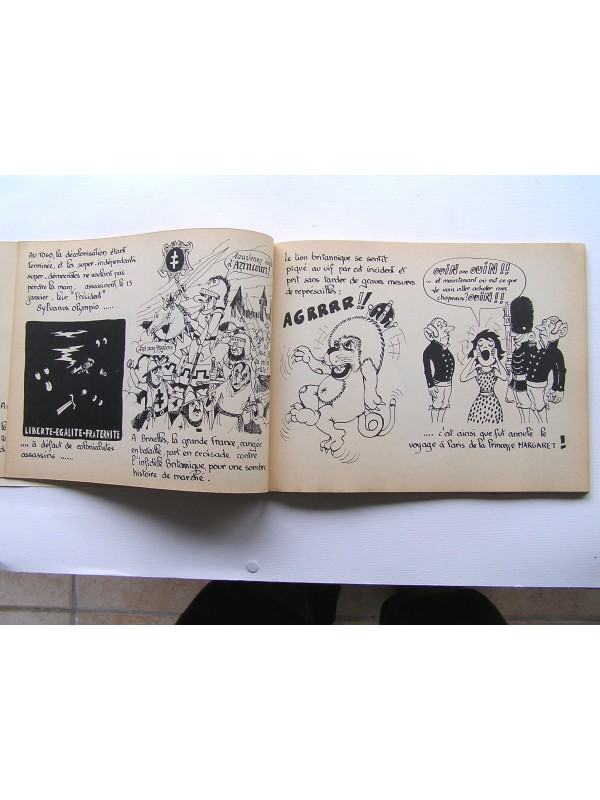 Au TOGO, la décolonisation étant
terminée, et les super-indépendants
super-démocrates ne voulant pas
perdre la main, assassinent le 13
janvier, leur "Président"
Sylvanus Olympio .....
LIBERTE-EGALITE-FRATERNITE
.... à défaut de colonialistes
assassins ......
d'AZINCOURT!
A Bruxelles, la grande France, rangée
en bataille, part en croisade contre
l'infidèle Britannique, pour une sombre
histoire de marché.
Le lion britannique se sentit
piqué au vif par cet incident et
prit sans tarder de graves mesures
de represailles:
AGRRRR!
OUIN OUIN!!
... et maintenant ou est ce que
je vais aller acheter mes
chapeaux? OUIN!!
.... c'est ainsi que fut annulé le
voyage à Paris de la Princesse MARGARET!